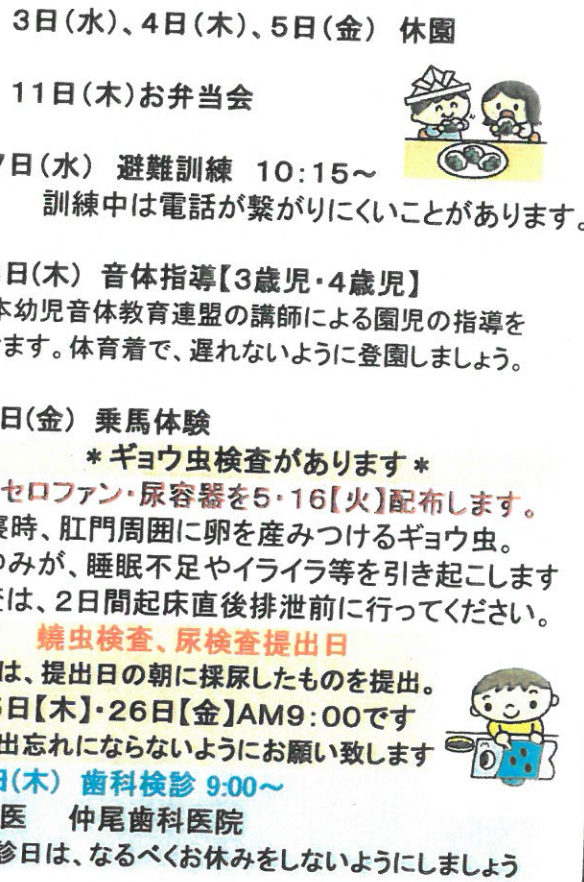 3日(水)、4日(木)、5日(金) 休園
11日(木)お弁当会
7日(水) 避難訓練 10:15~
訓練中は電話が繋がりにくいことがあります。
日(木) 音体指導【3歳児・4歳児】
本幼児音体教育連盟の講師による園児の指導を
ます。体育着で、遅れないように登園しましょう。
日(金) 乗馬体験
*ギョウ虫検査があります*
セロファン・尿容器を5・16【火】配布します。
寝時、肛門周囲に卵を産みつけるギョウ虫。
のみが、睡眠不足やイライラ等を引き起こします
は、2日間起床直後排泄前に行ってください。
蟯虫検査、尿検査提出日
は、提出日の朝に採尿したものを提出。
5日【木】・26日【金】AM9:00です
出忘れにならないようにお願い致します
日(木) 歯科検診 9:00~
医 仲尾歯科医院
診日は、なるべくお休みをしないようにしましょう